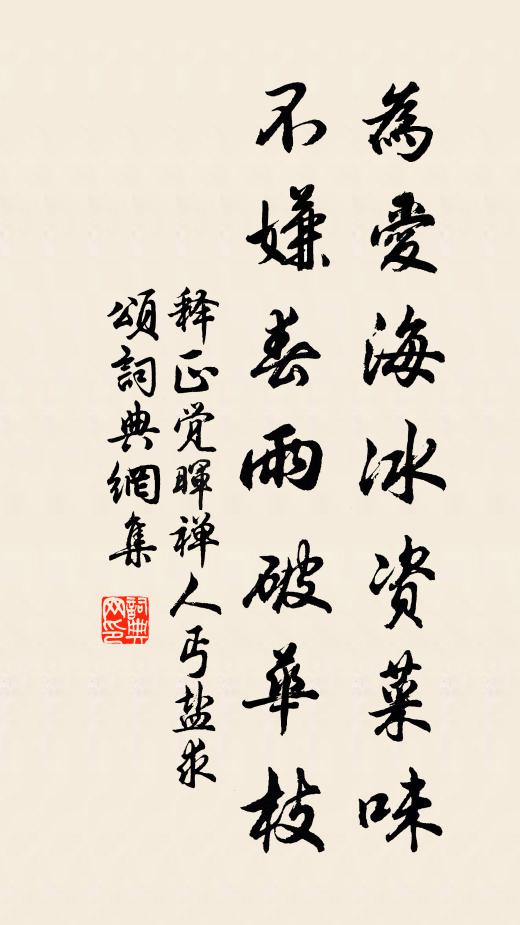 為愛海冰資菜味
不嫌春雨破華枝
释正觉暉禅人丐盐求
頌詞典網集
詞典
网印